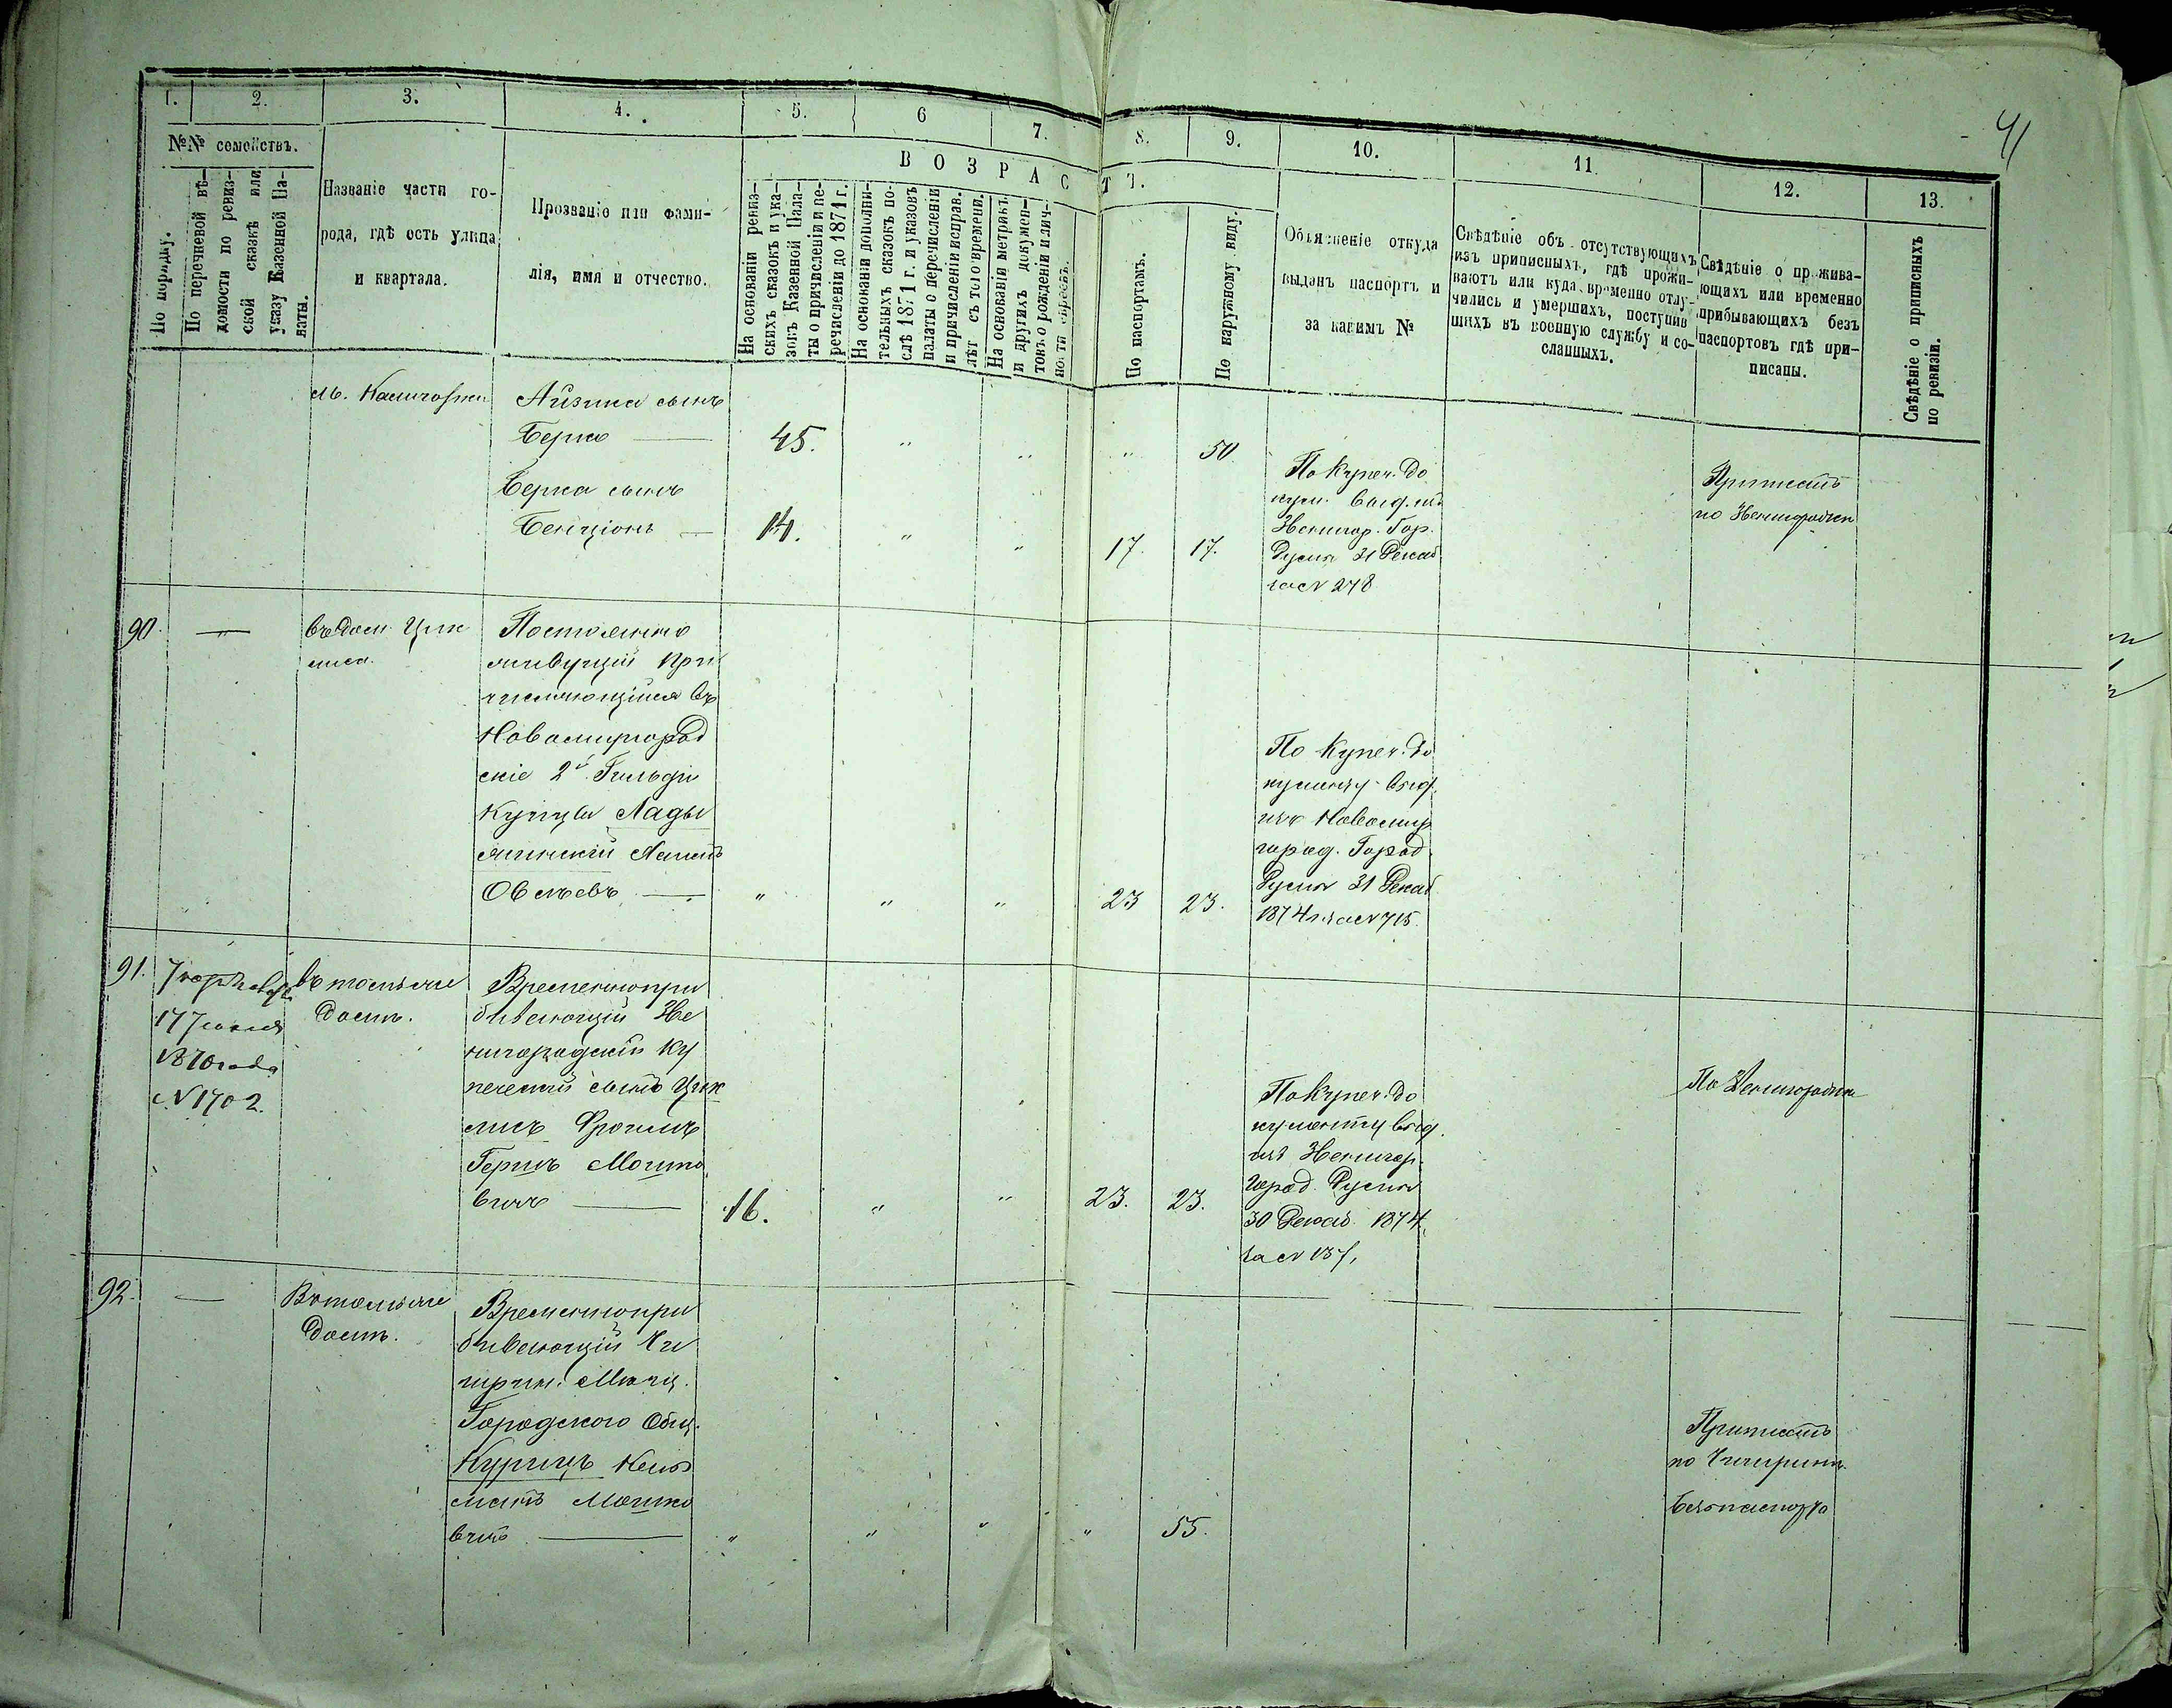 41
1.
2.
3.
4.
5.
6
7.
8.
9.
10.
11.
12.
13.
№№ семействъ.
По порядку.
По перечневой вѣ-
домости по ревиз-
ской сказкѣ или
указу Казенной Па-
латы.
Названіе части го-
рода, гдѣ есть улица
и квартала.
Прозваніе или фами-
лія, имя и отчество.
ВОЗРАСТЪ.
На основаніи ревиз-
скихъ сказокъ и ука-
зовъ Казенной Пала-
ты о причисленіи и пе-
речисленіи до 1871 г.
На основаніи дополни-
тельныхъ сказокъ по-
слѣ 1871 г. и указовъ
палаты о перечисленіи
и причисленіи исправ.
лѣт съ того времени.
На основаніи метрик.
и другихъ докумен-
товъ о рожденіи и лич-
По паспортамъ.
По наружному виду.
Объясненіе откуда
выданъ паспортъ и
за какимъ №
Свѣдѣніе объ отсутствующихъ
изъ приписныхъ, гдѣ прожи-
ваютъ или куда временно отлу-
чились и умершихъ, поступив
шихъ въ военную службу и со-
сланныхъ.
Свѣдѣніе о прожива-
ющихъ или временно
прибывающихъ безъ
паспортовъ гдѣ при-
писаны.
Свѣдѣніе о приписныхъ
по ревизіи.
Айзика сынъ
Берко — 45. " " " 50
Берка сынъ
Бенціонъ — 14. " " 17. 17.
По Купеч. до
кум. выд. изъ
Звенигор. Гор.
Думы 31 Декаб
за № 278
Приписанъ
по Звенигородки
90. —
въ дом. Цик
лиса.
Постоянно
живущій при
числяющійся въ
Новомиргород
скіе 2й Гильдіи
Купцы Лады
жинскій
Овсѣевъ — " " " 23 23.
По Купеч. до
кументу выд.
изъ Новомир
город. Город.
Думы 31 Декаб
1874 г. за № 715.
91.
17 Іюля
1870 года
№ 1702.
въ томъ же
домѣ.
Временно при
бывающій Зве
нигородскій ку
печескій сынъ Цик
лисъ Фроимъ
Гершъ Мошко
вичъ — 16. " " 23. 23.
По Купеч. до
кументу выд.
изъ Звенигор.
Город. Думы
30 Декаб. 1874
По Звенигородки
92. —
Въ томъ же
домѣ.
Временно при
бывающій Чи
гирин. Мѣщ.
Городского Общ.
Мошко
вичъ — " " " " 55.
Приписанъ
по Чигирину
безъ паспорта